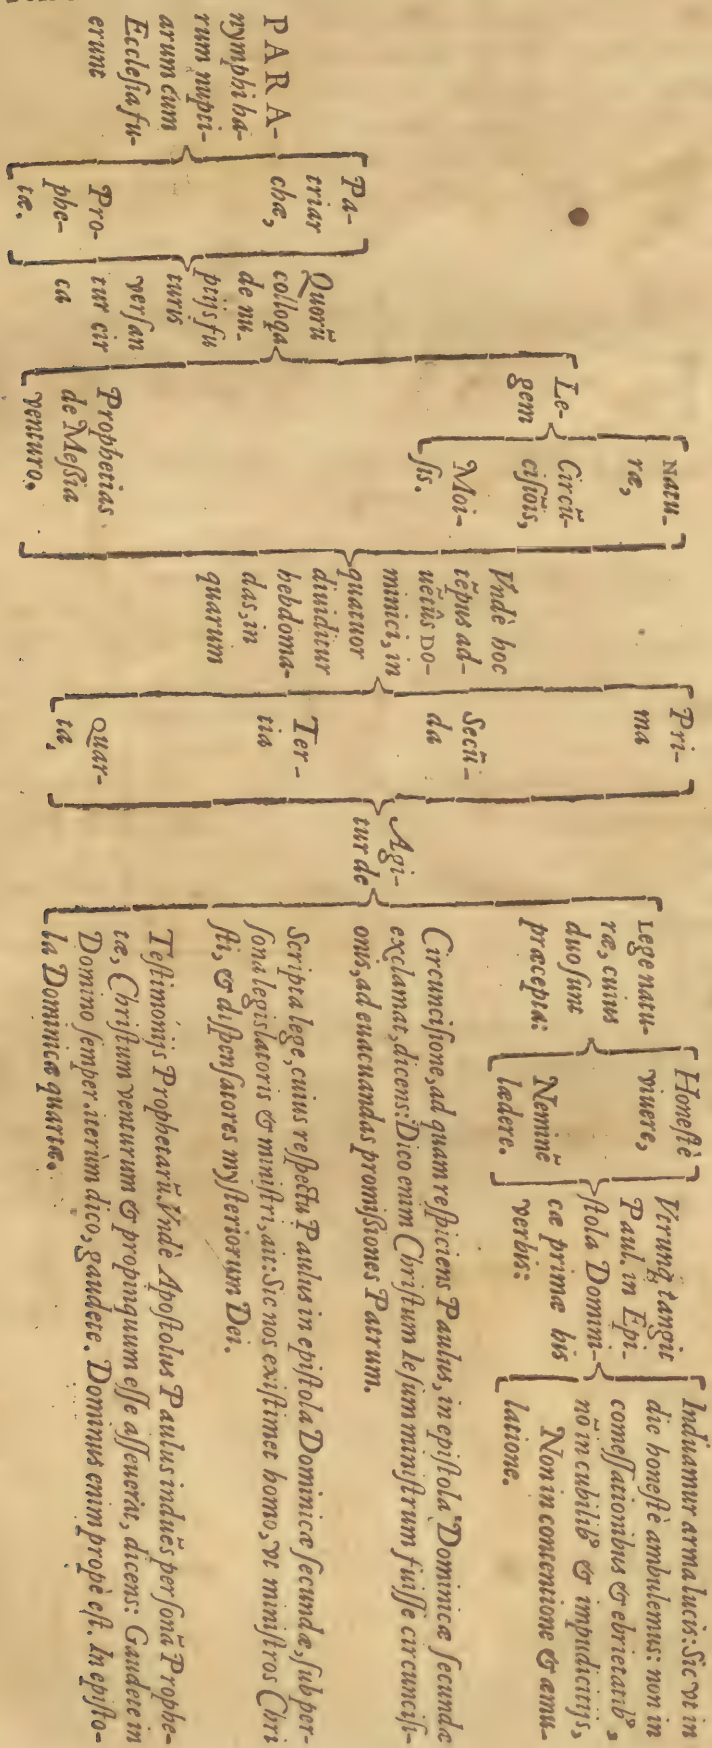 PARA-
nymphi ha-
rum nupti-
arum cum
Ecclesia fu-
erunt
Pa-
triar
chæ,
Pro-
phe-
tæ.
Quorũ
colloqa
de nu-
ptijs fu
turis
versan
tur cir
ca
Le-
gem
Natu-
ræ,
Circũ-
cisiõis,
Moi-
sis.
Prophetias
de Messia
venturo.
Vndè hoc
tẽpus ad-
uẽtûs DO-
minici, in
quatuor
diuiditur
hebdoma-
das, in
quarum
Pri-
ma
Secũ-
da
Ter-
tia
Quar-
ta,
Agi-
tur de
Lege natu-
ræ, cuius
duo sunt
præcepta:
Honestè
viuere,
Neminẽ
lædere.
Vtrunq; tangit
Paul. in Epi-
stola Domini-
cæ primæ his
verbis:
Induamur arma lucis: Sic vt in
die honestè ambulemus: non in
comessationibus & ebrietatib9,
nõ in cubilib9 & impudicitijs,
Non in contentione & æmu-
latione.
Circuncisione, ad quam respiciens Paulus, in epistola Dominicæ secundæ
exclamat, dicens: Dico enim Christum Iesum ministrum fuisse circuncisi-
onis, ad euacuandas promissiones Patrum.
Scripta lege, cuius respectu Paulus in epistola Dominicæ secundæ, sub per-
sona legislatoris & ministri, ait: Sic nos existimet homo, vt ministros Chri
sti, & dispensatores mysteriorum Dei.
Testimonijs Prophetarũ. Vndè Apostolus Paulus induẽs personã Prophe-
tæ, Christum venturum & propinquum esse asseuerat, dicens: Gaudete in
Domino semper. iterùm dico, gaudete. Dominus enim propè est. In episto-
la Dominicæ quartæ.